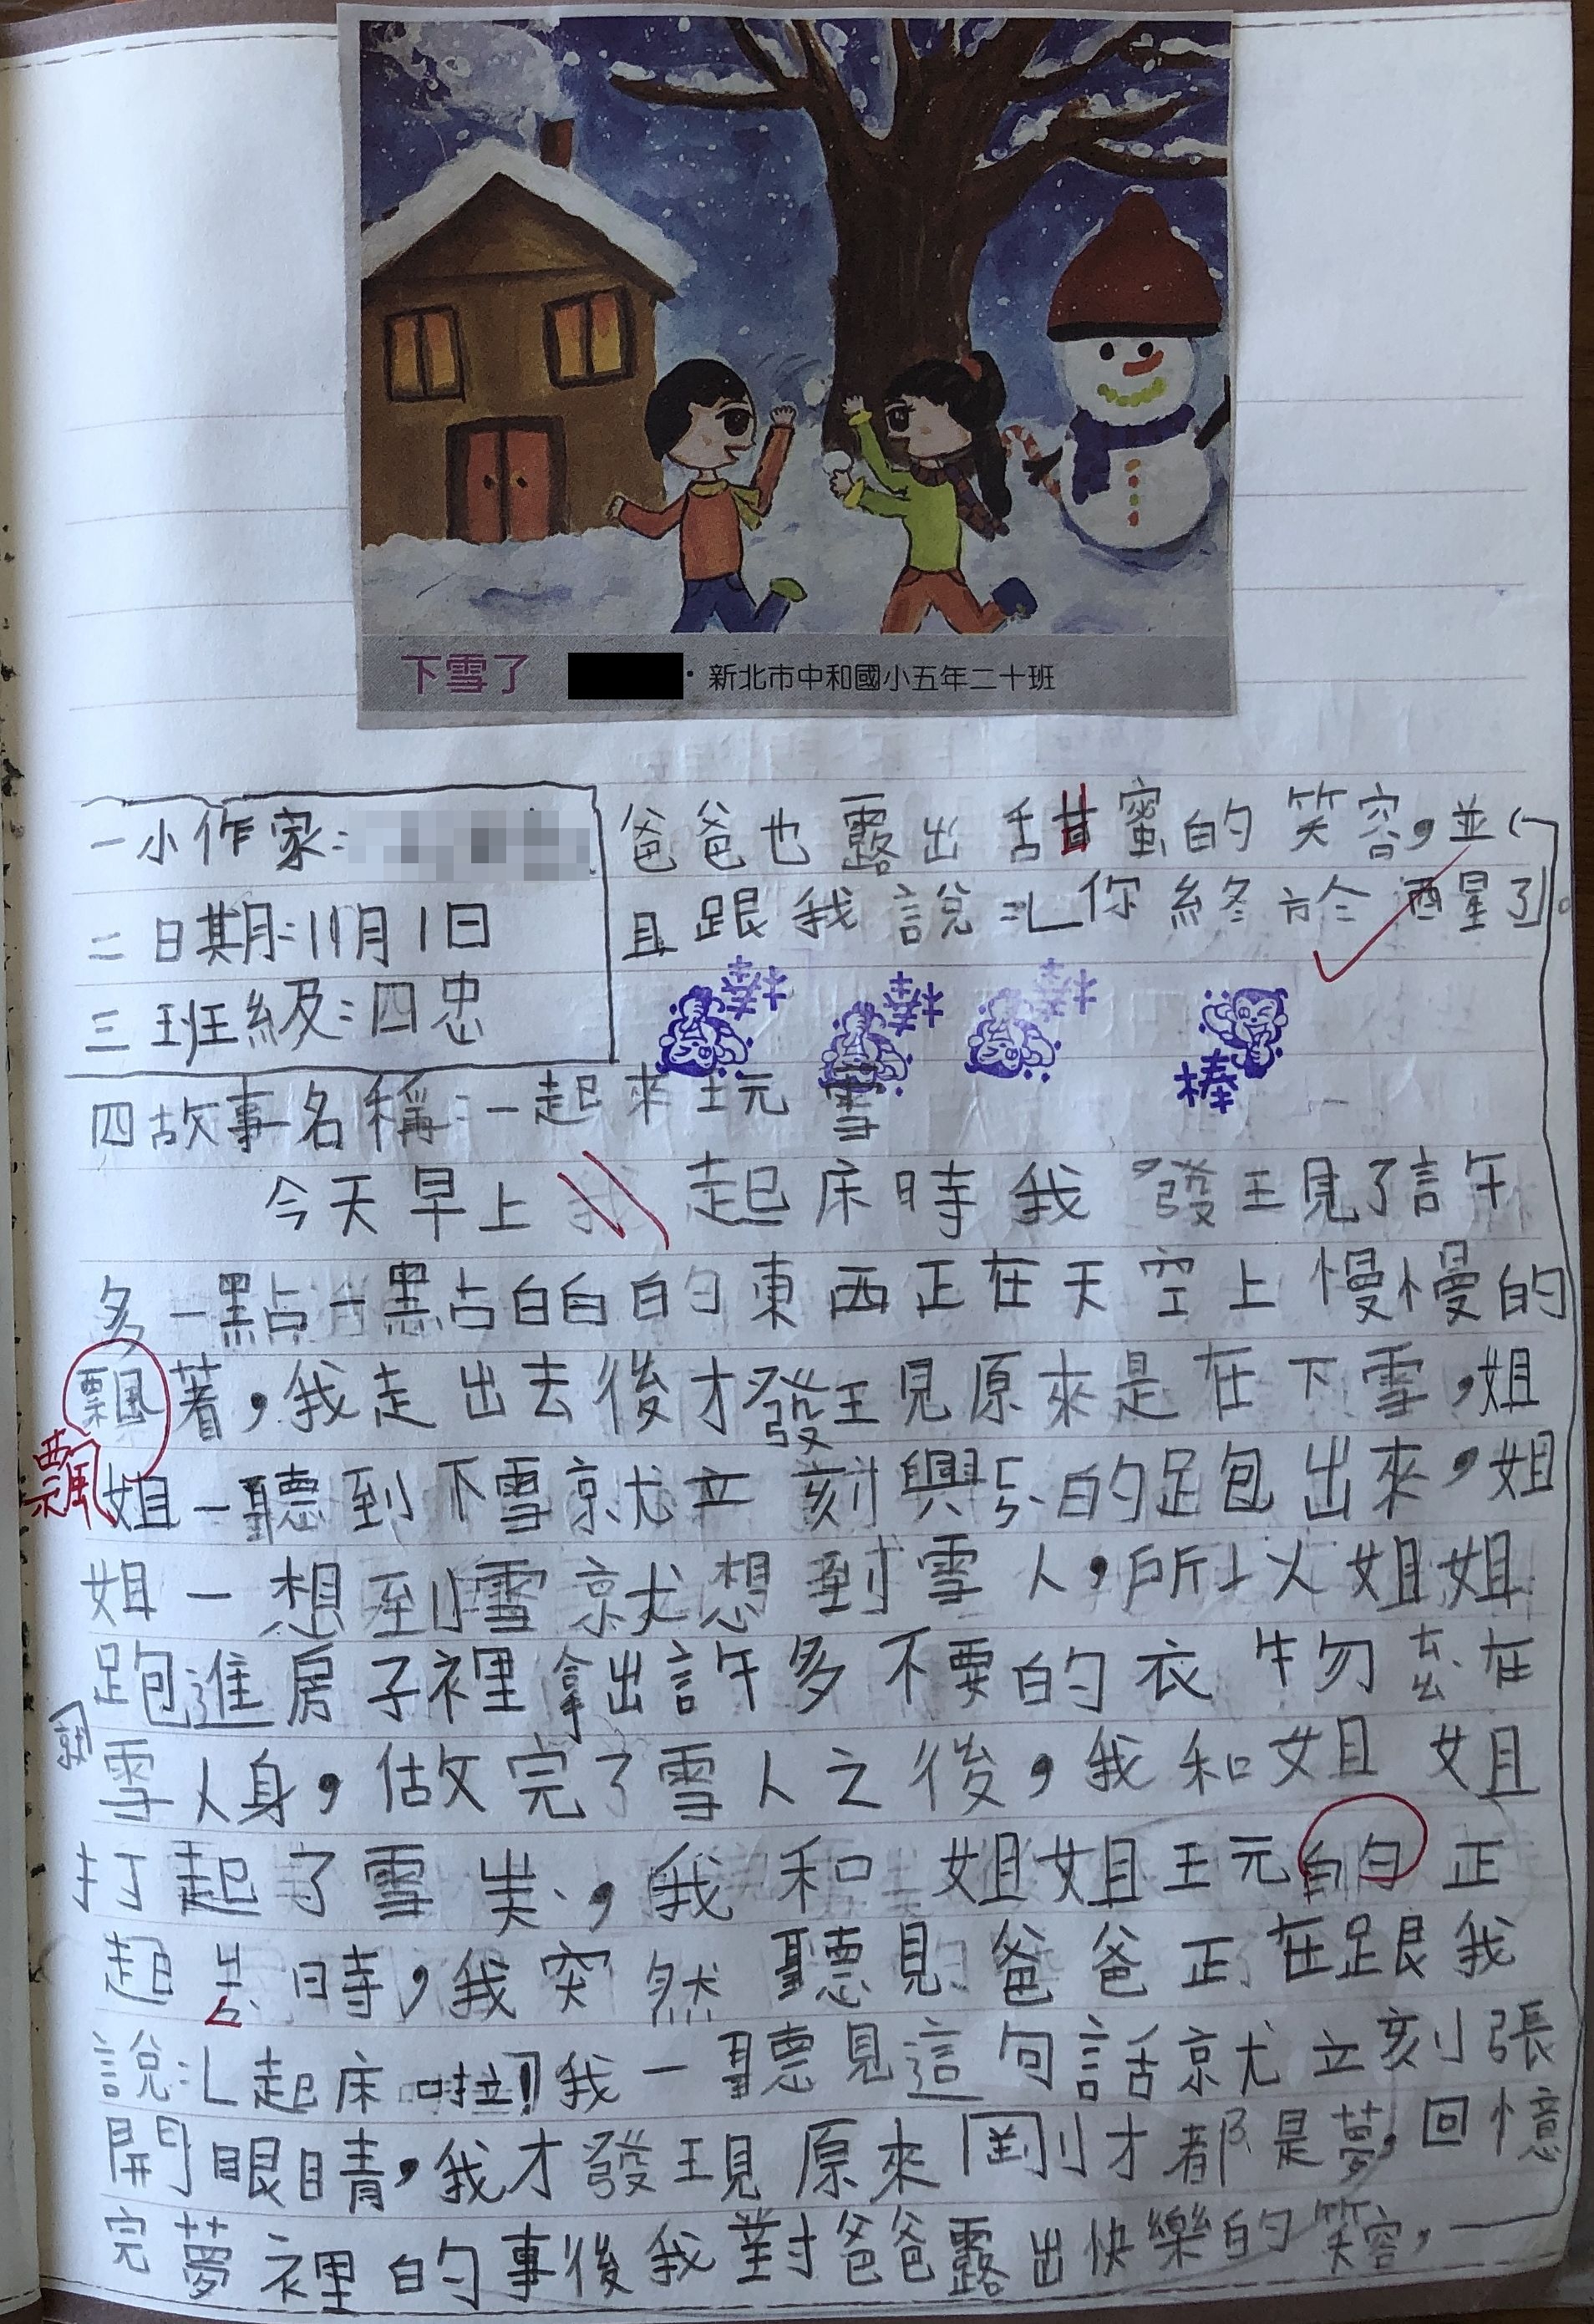 下雪了 ·新北市中和國小五年二十班
一小作家:
二日期:11月1日
三班級:四忠
四故事名稱:一起來玩雪
今天早上 起床時我發現了許
多一點一點白白的東西正在天空上慢慢的
飄著,我走出去後才發現原來是在下雪,姐
飄
姐一聽到下雪就立刻興奮的跑出來,姐
姐一想到雪就想到雪人,所以姐姐
跑進房子裡拿出許多不要的衣物丟在
雪人身,做完了雪人之後,我和姐姐
打起了雪柋,我和姐姐玩的正
起 時,我突然聽見爸爸正在跟我
說:「起床啦!」我一聽見這句話就立刻張
開眼睛,我才發現原來剛才都是夢,回憶
完夢裡的事後我對爸爸露出快樂的笑容,
爸爸也露出甜蜜的笑容,並
且跟我說:「你終於醒了」。
棒
棒
棒
棒